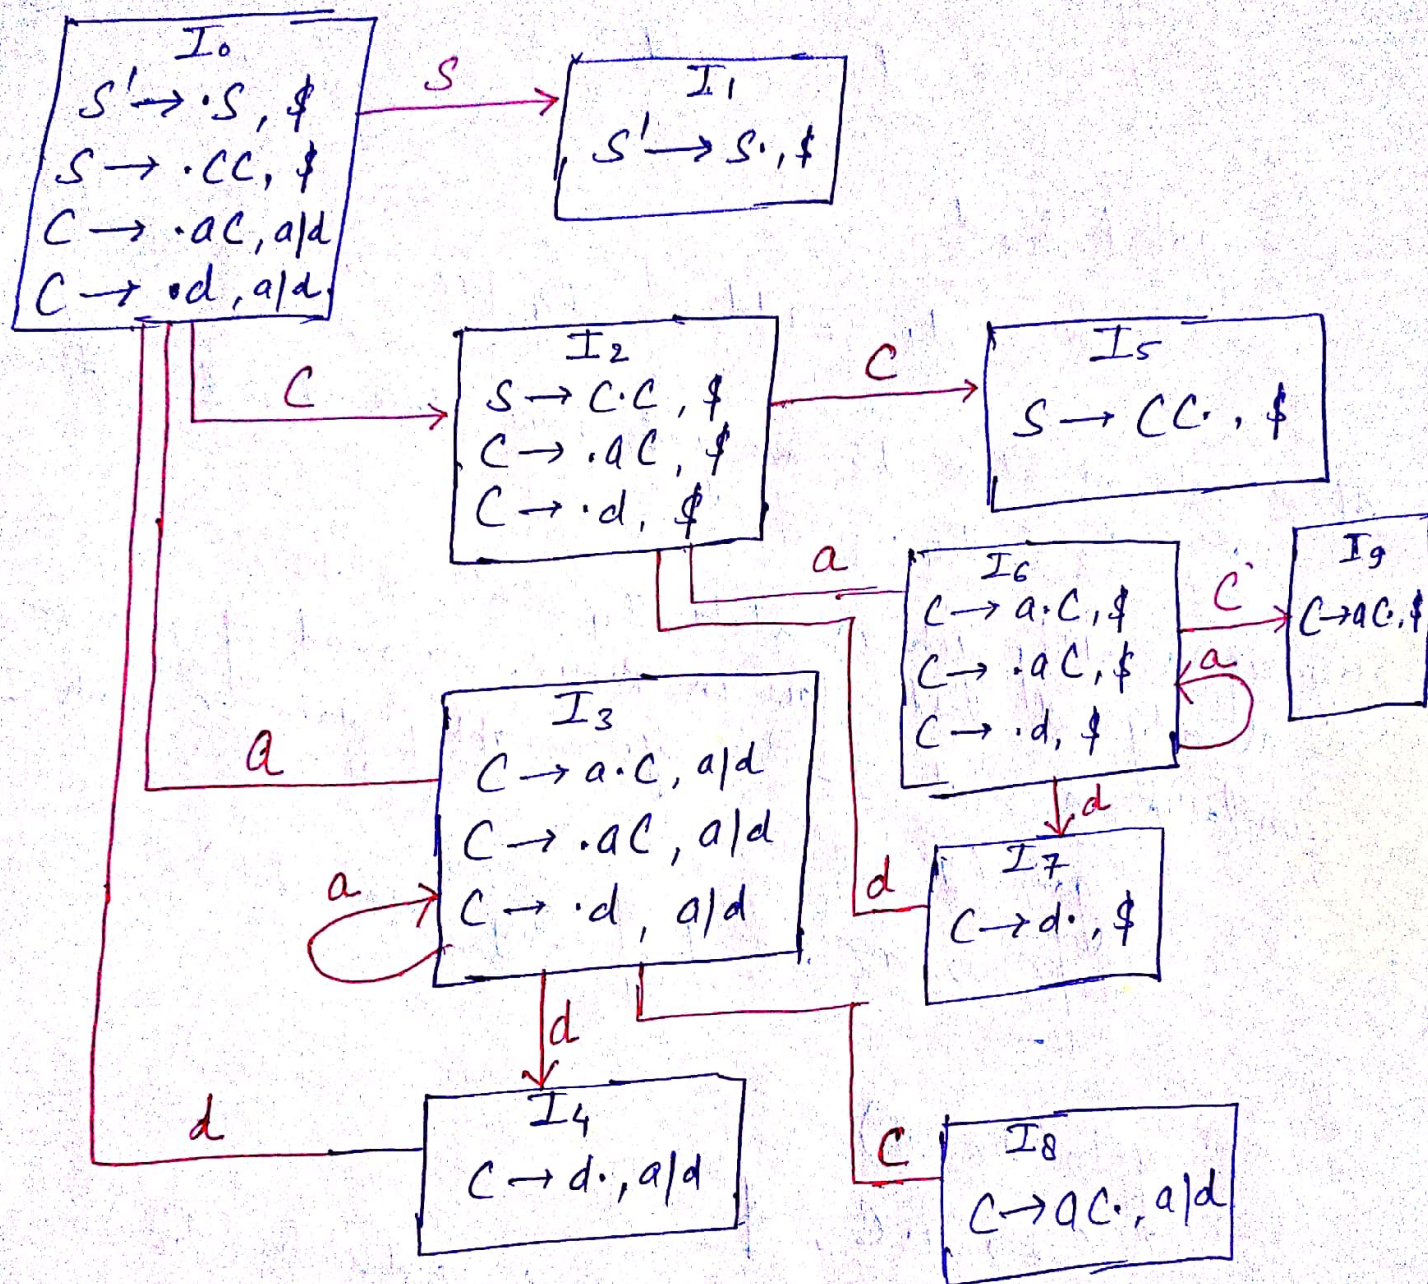 I0
S' → ·S, $
S → ·CC, $
C → ·aC, a/d
C → ·d, a/d
S
I1
S' → S·, $
C
I2
S → C·C, $
C → ·aC, $
C → ·d, $
C
I5
S → CC·, $
a
I6
C → a·C, $
C → ·aC, $
C → ·d, $
C
I9
C → aC·, $
a
d
d
I7
C → d·, $
a
I3
C → a·C, a/d
C → ·aC, a/d
C → ·d, a/d
a
d
d
I4
C → d·, a/d
C
I8
C → aC·, a/d